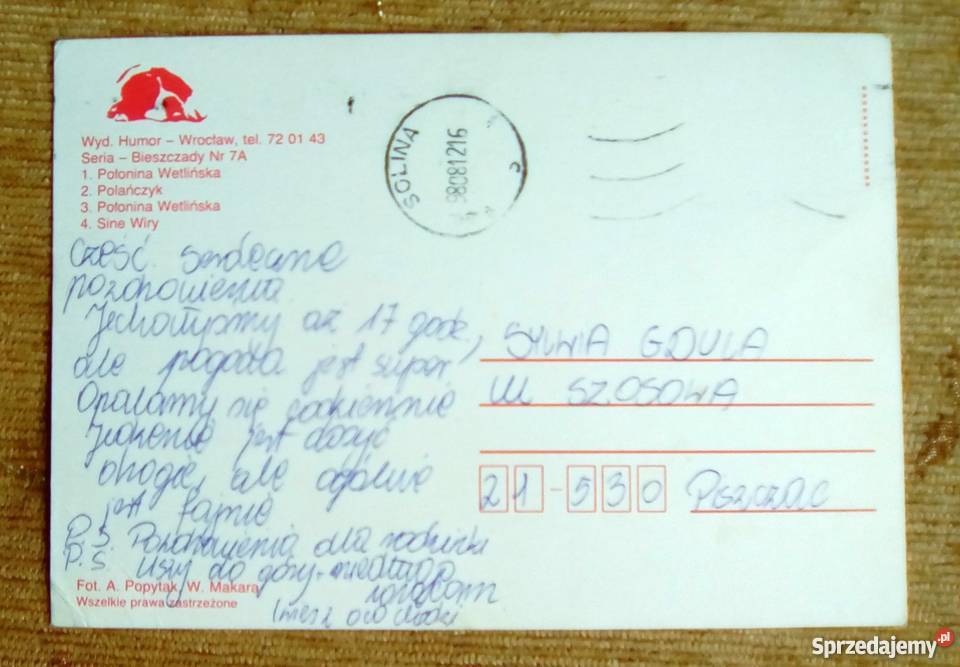 Wyd. Humor – Wrocław, tel. 72 01 43
Seria – Bieszczady Nr 7A
1. Połonina Wetlińska
2. Polańczyk
3. Połonina Wetlińska
4. Sine Wiry
SOLINA
98081216
Cześć serdeczne
pozdrowienia
Jechałyśmy aż 17 godz,
ale pogoda jest super
Opalamy się codziennie
Jedzenie jest dosyć
drogie, ale ogólnie
jest fajnie
P.S. Pozdrowienia dla rodzinki
P.S. Uszy do góry - niedługo
wracam
SYLWIA GDULA
Ul SZOSOWA
21-530 Piszczac
Fot. A. Popytak, W. Makara
Wszelkie prawa zastrzeżone
Sprzedajemy.pl